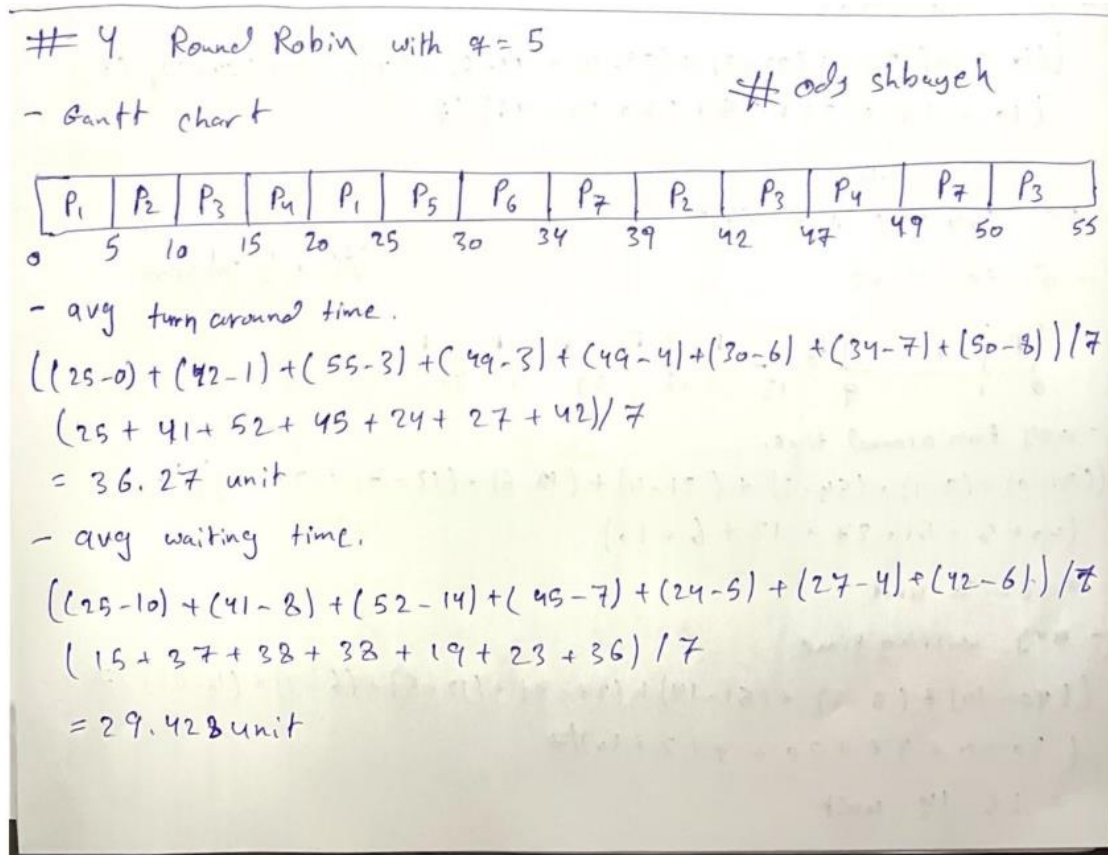 # 4 Round Robin with q = 5
# ods shbayeh
- Gantt chart
P1 | P2 | P3 | P4 | P1 | P5 | P6 | P7 | P2 | P3 | P4 | P7 | P3
0 5 10 15 20 25 30 34 39 42 47 49 50 55
- avg turn around time.
((25-0) + (42-1) + (55-3) + (49-3) + (49-4) + (30-6) + (34-7) + (50-8)) / 7
(25 + 41 + 52 + 45 + 24 + 27 + 42) / 7
= 36.27 unit
- avg waiting time.
((25-10) + (41-8) + (52-14) + (45-7) + (24-5) + (27-4) + (42-6)) / 7
(15 + 37 + 38 + 38 + 19 + 23 + 36) / 7
= 29.428 unit